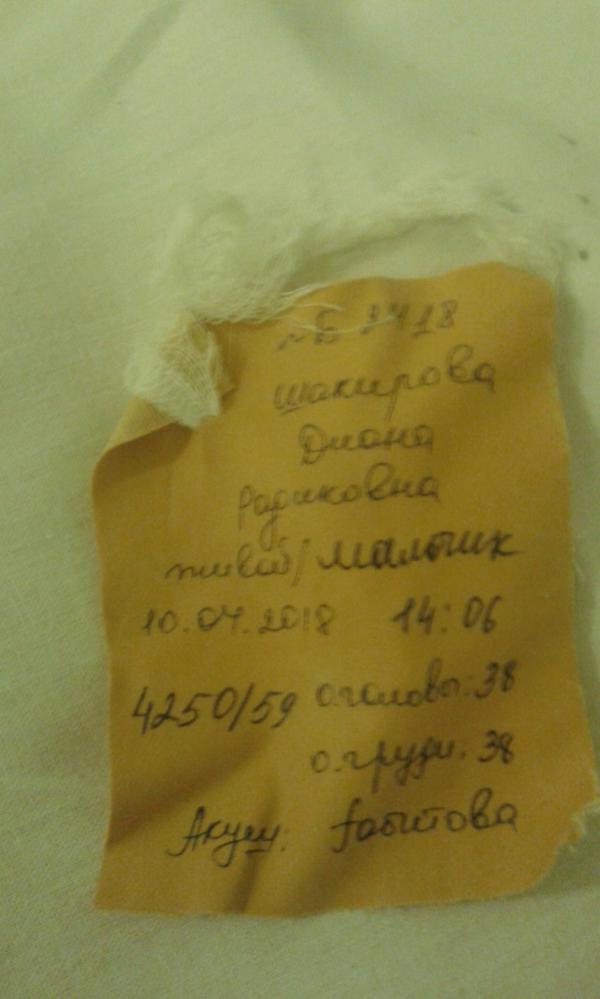 Шакирова
Диана
Радиковна
живой/мальчик
10.04.2018 14:06
4250/59 о.головы: 38
о.груди. 38
Акуш: